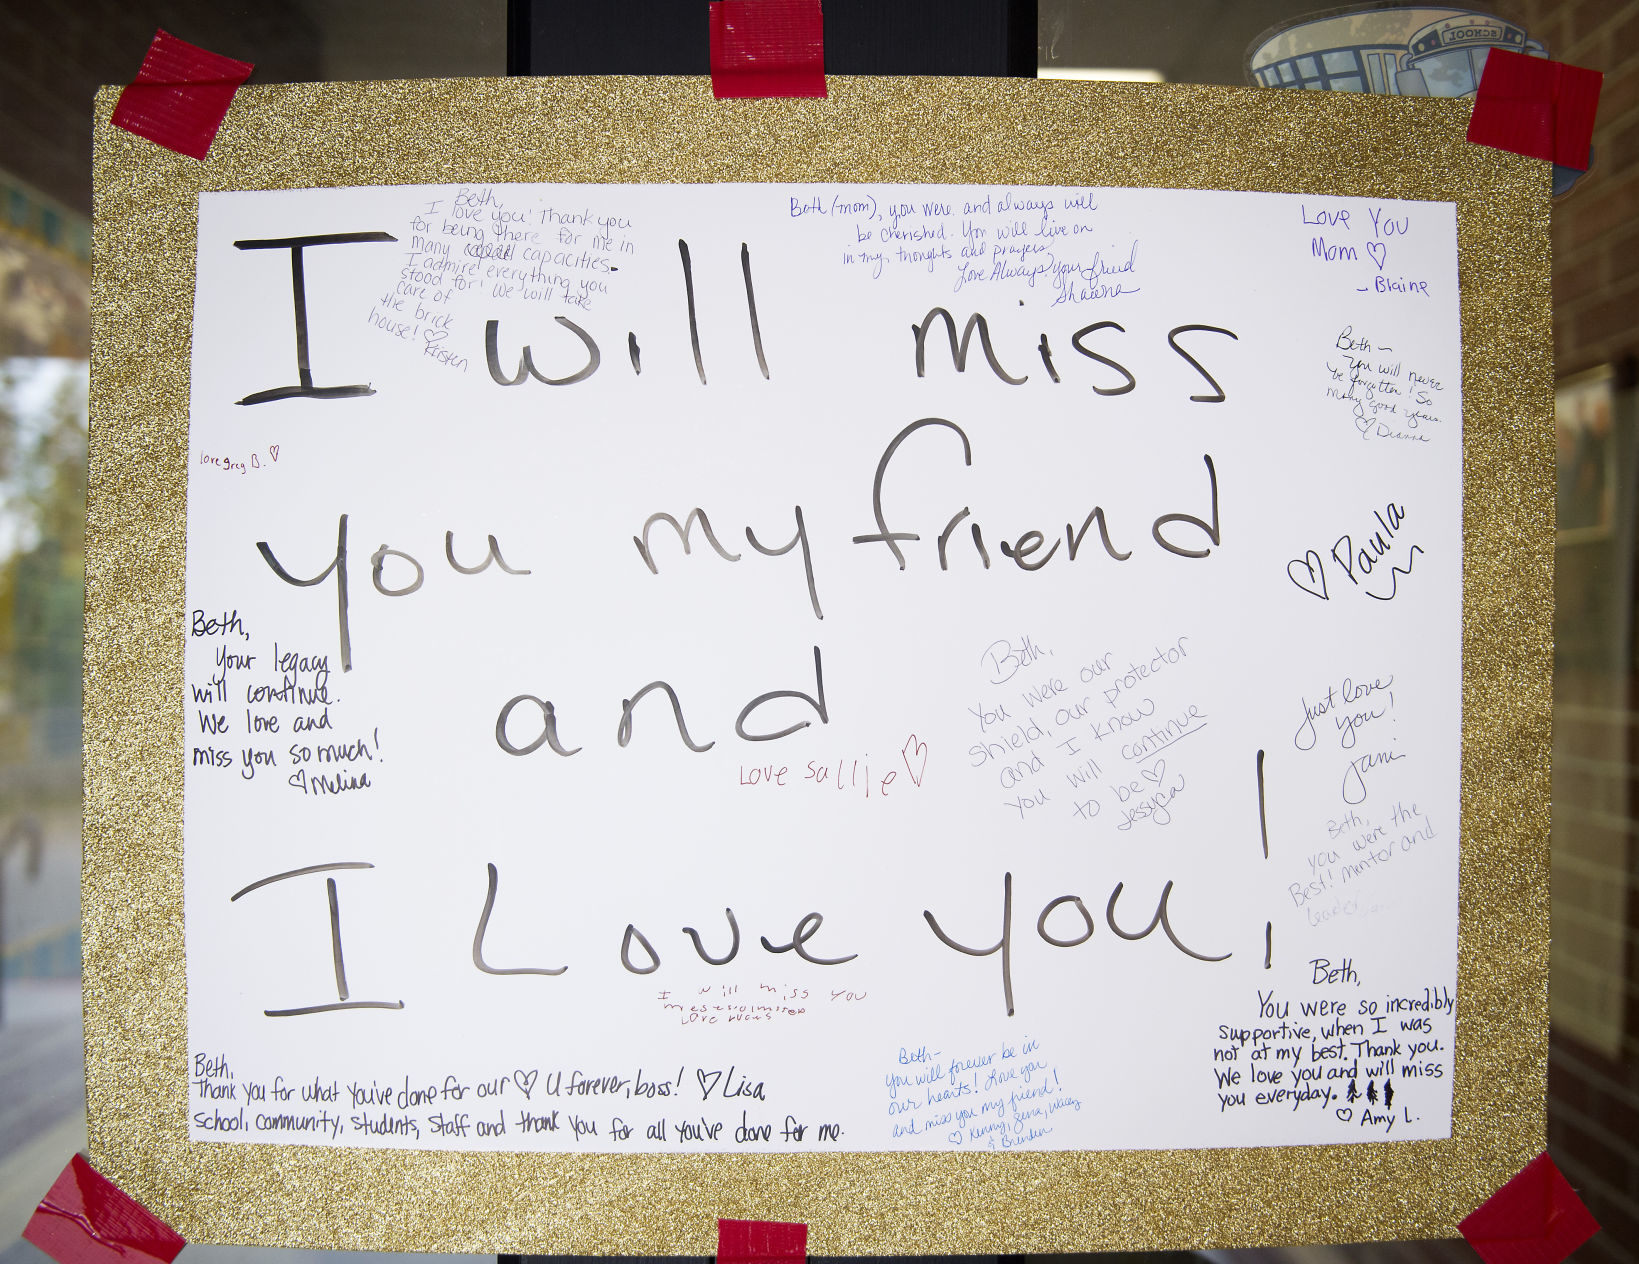 SCHOOL
Beth,
I love you! Thank you
for being there for me in
many capacities.
I admire everything you
stood for! We will take
care of
the brick
house! ♡
Kristen
Beth (mom), you were and always will
be cherished. You will live on
in my thoughts and prayers
Love Always, your friend
Shawna
Love You
Mom ♡
- Blaine
I will miss
Beth ~
You will never
be forgotten! So
many good years.
♡ Dianne
love greg B. ♡
you my friend
♡ Paula
Beth,
Your legacy
will continue.
We love and
miss you so much!
♡ Melina
and
Love Sallie ♡
Beth,
You were our
shield, our protector
and I know
you will continue
to be ♡
Jessyca
Just love
you!
Jani
Beth,
you were the
Best! mentor and
leader
I Love you!
I will miss you
love
Beth,
Thank you for what you've done for our ♡ U forever, boss! ♡ Lisa
school, community, students, staff and thank you for all you've done for me.
Beth-
you will forever be in
our hearts! Love you
and miss you my friend!
♡ Kenny, Jena,
& Brenden
Beth,
You were so incredibly
supportive, when I was
not at my best. Thank you.
We love you and will miss
you everyday.
♡ Amy L.